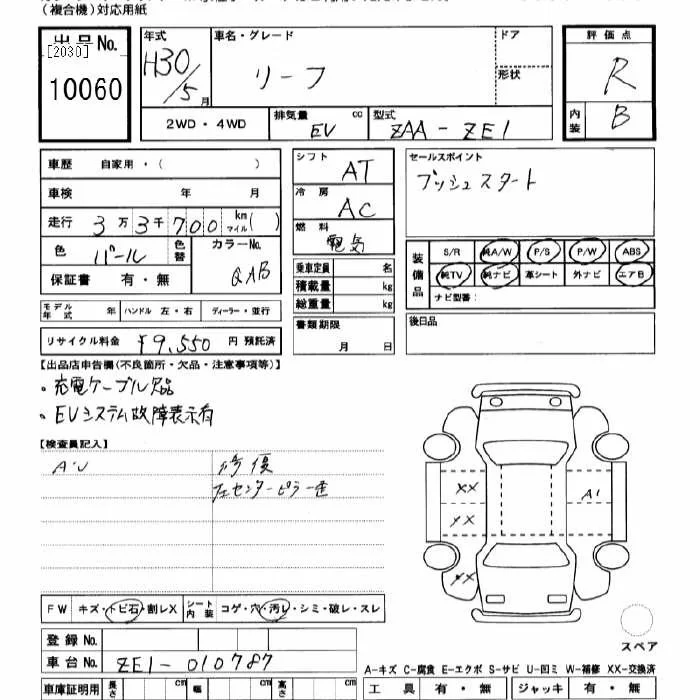 (複合機)対応用紙
出品No.
[2030]
10060
年式 H30/5月
車名・グレード リーフ
ドア
形状
評価点 R
内装 B
2WD・4WD
排気量 EV cc
型式 ZAA-ZE1
車歴 自家用・( )
車検 年 月
走行 3万3千700 km マイル( )
色 パール 色替
カラーNo. QAB
保証書 有・無
シフト AT
冷房 AC
燃料 電気
乗車定員 名
積載量 kg
総重量 kg
セールスポイント
プッシュスタート
装備品
S/R 純A/W P/S P/W ABS
純TV 純ナビ 革シート 外ナビ エアB
ナビ型番:
モデル年式 年 ハンドル 左・右 ディーラー・並行
書類期限 月 日
後日品
リサイクル料金 ¥9,550 円 預託済
【出品店申告欄(不良箇所・欠品・注意事項等)】
・充電ケーブル欠品
・EVシステム故障表示有
【検査員記入】
A・U
修復
左センターピラー歪
XX
XX
XX
A1
FW キズ・トビ石・割レX シート内装 コゲ・穴・汚レ・シミ・破レ・スレ
スペア
登録No.
車台No. ZE1-010787
車庫証明用 長さ cm 幅 cm 高さ cm
A-キズ C-腐食 E-エクボ S-サビ U-凹ミ W-補修 XX-交換済
工具 有・無 ジャッキ 有・無